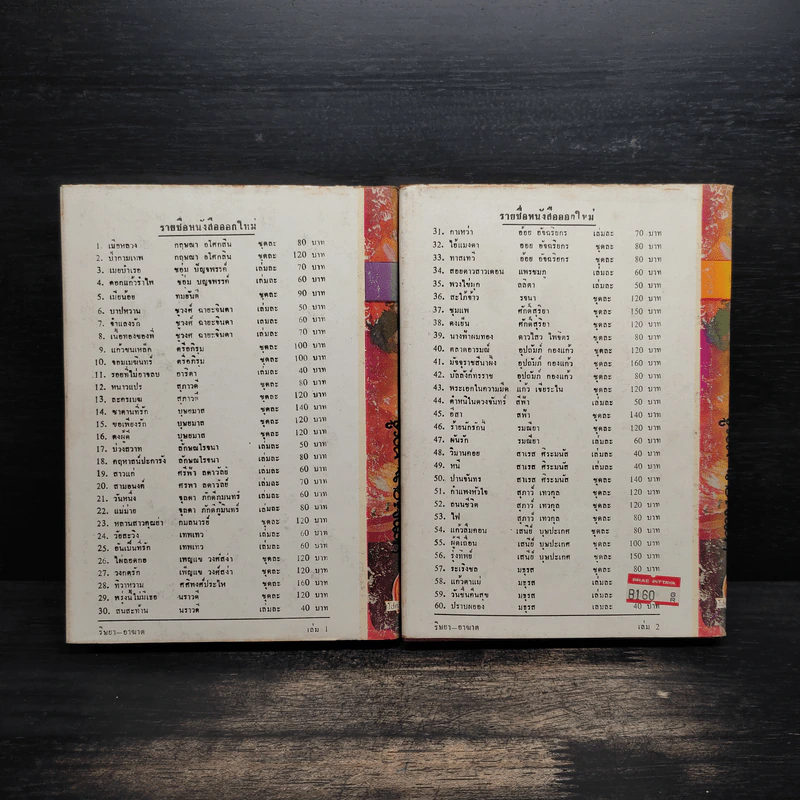 รายชื่อหนังสือออกใหม่
1. เมียหลวง กฤษณา อโศกสิน ชุดละ 80 บาท
2. ป่ากามเทพ กฤษณา อโศกสิน ชุดละ 120 บาท
3. เมียบำเรอ ช่อม ปัญจพรรค์ เล่มละ 70 บาท
4. ดอกแก้วรำไพ ช่อม ปัญจพรรค์ เล่มละ 60 บาท
5. เมียน้อย ทมยันตี ชุดละ 90 บาท
6. บาปหวาน ชูวงศ์ ฉายะจินดา เล่มละ 50 บาท
7. จำเลยรัก ชูวงศ์ ฉายะจินดา เล่มละ 60 บาท
8. เนื้อทองของพี่ ชูวงศ์ ฉายะจินดา เล่มละ 70 บาท
9. แก้วขนเหล็ก ตรีอภิรุม ชุดละ 100 บาท
10. จอมเมฆินทร์ ตรีอภิรุม ชุดละ 100 บาท
11. รอยที่ไม่อาจลบ อาริตา เล่มละ 40 บาท
12. หนาวแปร สุภาวดี ชุดละ 80 บาท
13. ละครเบฆ สุภาวดี ชุดละ 120 บาท
14. ซาตานที่รัก บุษยมาส ชุดละ 140 บาท
15. ขอเพียงรัก บุษยมาส ชุดละ 120 บาท
16. ดงผู้ดี บุษยมาส ชุดละ 120 บาท
17. บ่วงสวาท ลักษณะโรจนา เล่มละ 50 บาท
18. คฤหาสน์ปะการัง ลักษณะโรจนา เล่มละ 80 บาท
19. สาวแก่ ศรีฟ้า ลดาวัลย์ เล่มละ 60 บาท
20. สามอนงค์ ศรฟ้า ลดาวัลย์ เล่มละ 70 บาท
21. วันหนึ่ง ชุลดา ภักดีภูมินทร์ เล่มละ 60 บาท
22. แม่ม่าย ชุลดา ภักดีภูมินทร์ เล่มละ 80 บาท
23. หลานสาวคุณย่า กมลนารย์ ชุดละ 120 บาท
24. วัยสะวิง เทพเทวี เล่มละ 60 บาท
25. อันเป็นที่รัก เทพเทวี เล่มละ 60 บาท
26. ไฟลอดกอ เพ็ญแข วงศ์สง่า ชุดละ 120 บาท
27. วงกตรัก เพ็ญแข วงศ์สง่า ชุดละ 120 บาท
28. ทิวาหวาม ศศิพงศ์ประไพ ชุดละ 160 บาท
29. พรุ่งนี้ไม่มีเธอ นราวดี ชุดละ 120 บาท
30. สนสะท้าน นราวดี เล่มละ 40 บาท
ริษยา—อาฆาต เล่ม 1
รายชื่อหนังสือออกใหม่
31. กาเหว่า อ้อย อัจฉริยกร เล่มละ 70 บาท
32. ไอ้แมงดา อ้อย อัจฉริยกร ชุดละ 80 บาท
33. ทาสเทวี อ้อย อัจฉริยกร ชุดละ 80 บาท
34. สอยดาวสาวเดือน แพรชมภู เล่มละ 60 บาท
35. พวงไข่มุก ลลิตา เล่มละ 50 บาท
36. สะใภ้จ้าว รจนา ชุดละ 120 บาท
37. ชุมแพ ศักดิ์สุริยา ชุดละ 150 บาท
38. ดงเย็น ศักดิ์สุริยา ชุดละ 120 บาท
39. นางฟ้าผมทอง ดาวไสว ไพจิตร ชุดละ 80 บาท
40. ตลาดอารมณ์ อุปถัมภ์ กองแก้ว ชุดละ 120 บาท
41. มัจจุราชสีน้ำผึ้ง อุปถัมภ์ กองแก้ว ชุดละ 160 บาท
42. บัลลังก์ทรราช อุปถัมภ์ กองแก้ว ชุดละ 80 บาท
43. พระเอกในความมืด แก้ว เจียระไน ชุดละ 120 บาท
44. ตำหนิในดวงจันทร์ สีฟ้า เล่มละ 50 บาท
45. อีสา สีฟ้า ชุดละ 140 บาท
46. ร้ายนักรักนี้ รมณียา ชุดละ 120 บาท
47. ฝนรัก รมณียา เล่มละ 60 บาท
48. วิมานคอย สาเรส ศิระมนัส เล่มละ 40 บาท
49. หนี้ สาเรส ศิระมนัส เล่มละ 40 บาท
50. ปานจันทร สาเรส ศิระมนัส ชุดละ 140 บาท
51. กำแพงหัวใจ สุภาว์ เทวกุล ชุดละ 120 บาท
52. ถนนชีวิต สุภาว์ เทวกุล ชุดละ 120 บาท
53. ไฟ สุภาว์ เทวกุล ชุดละ 120 บาท
54. แก้วลืมคอน เสนีย์ บุษปะเกศ ชุดละ 80 บาท
55. ผู้ดีเถื่อน เสนีย์ บุษปะเกศ ชุดละ 100 บาท
56. รุ้งทิพย์ เสนีย์ บุษปะเกศ ชุดละ 150 บาท
57. ระเริงชล มธุรส ชุดละ 80 บาท
58. แก้วตาแม่ มธุรส เล่มละ
59. วันชื่นคืนสุข มธุรส เล่มละ
60. ปราบพยอง มธุรส เล่มละ 40 บาท
B160
ริษยา—อาฆาต เล่ม 2